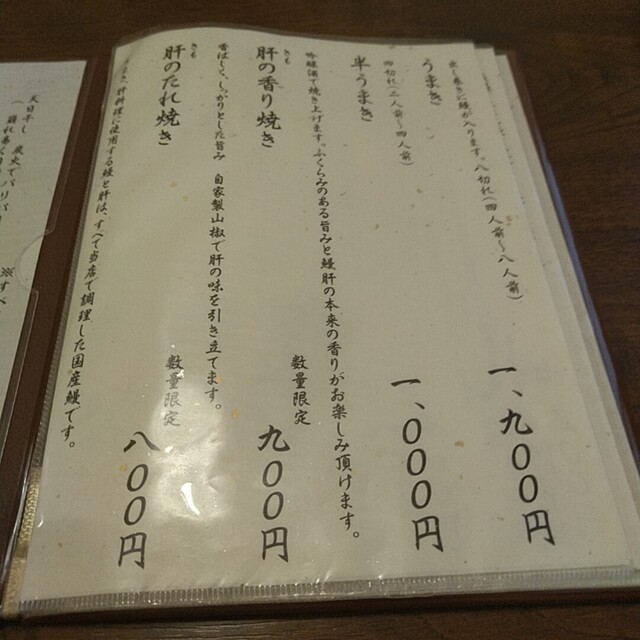 うまき 一、九〇〇円
出し巻きに鰻が入ります。八切れ（四人前〜八人前）
半うまき 一、〇〇〇円
四切れ（二人前〜四人前）
肝の香り焼き 数量限定 九〇〇円
きも
吟醸酒で焼き上げます。ふくらみのある旨みと鰻肝の本来の香りがお楽しみ頂けます。
肝のたれ焼き 数量限定 八〇〇円
きも
香ばしく、しっかりとした旨み 自家製山椒で肝の味を引き立てます。
肝料理に使用する鰻と肝は、すべて当店で調理した国産鰻です。
天日干し 炭火でパ
※すべ